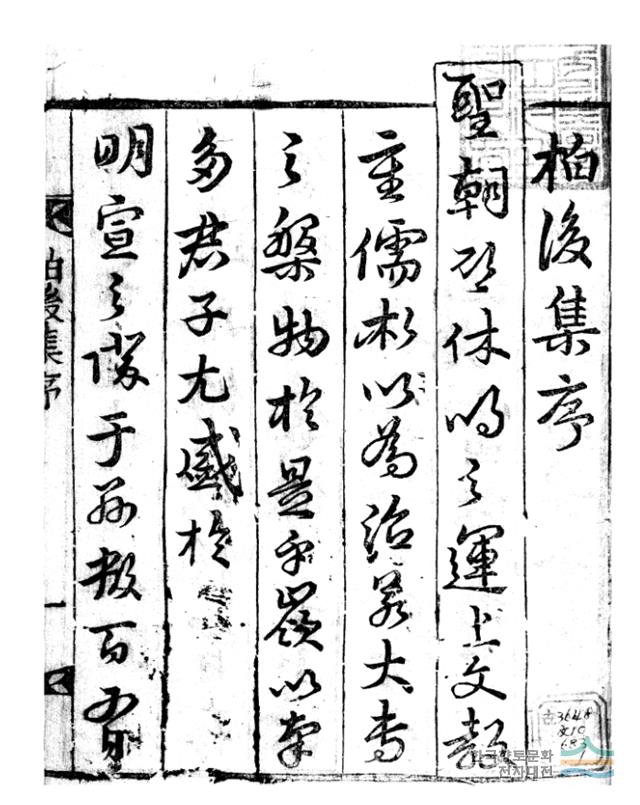 柏後集序
聖朝 休明之運上文教
重儒術以爲治若大專
之槃物於是乎嶺以南
多君子尤盛於
明宣之際于玆數百有
柏後集序
一
古3648
683
1
한국향토문화
전자대전